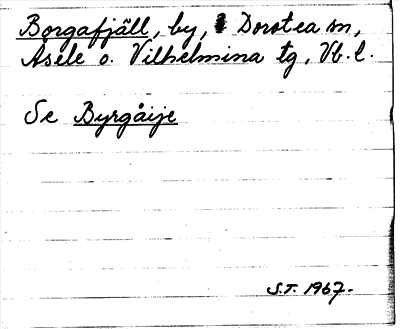 Borgafjäll, by, Dorotea sn,
Åsele o. Vilhelmina tg, Vb. l.
Se Byrgåije
S.T. 1967.